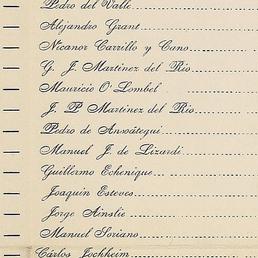 Pedro del Valle
Alejandro Grant
Nicanor Carrillo y Cano
G. J. Martinez del Rio
Mauricio O'Lombel
J. P Martinez del Rio
Pedro de Ansoátegui
Manuel J. de Lizardi
Guillermo Echenique
Joaquin Esteves
Jorge Ainslie
Manuel Soriano
Cárlos Jochheim